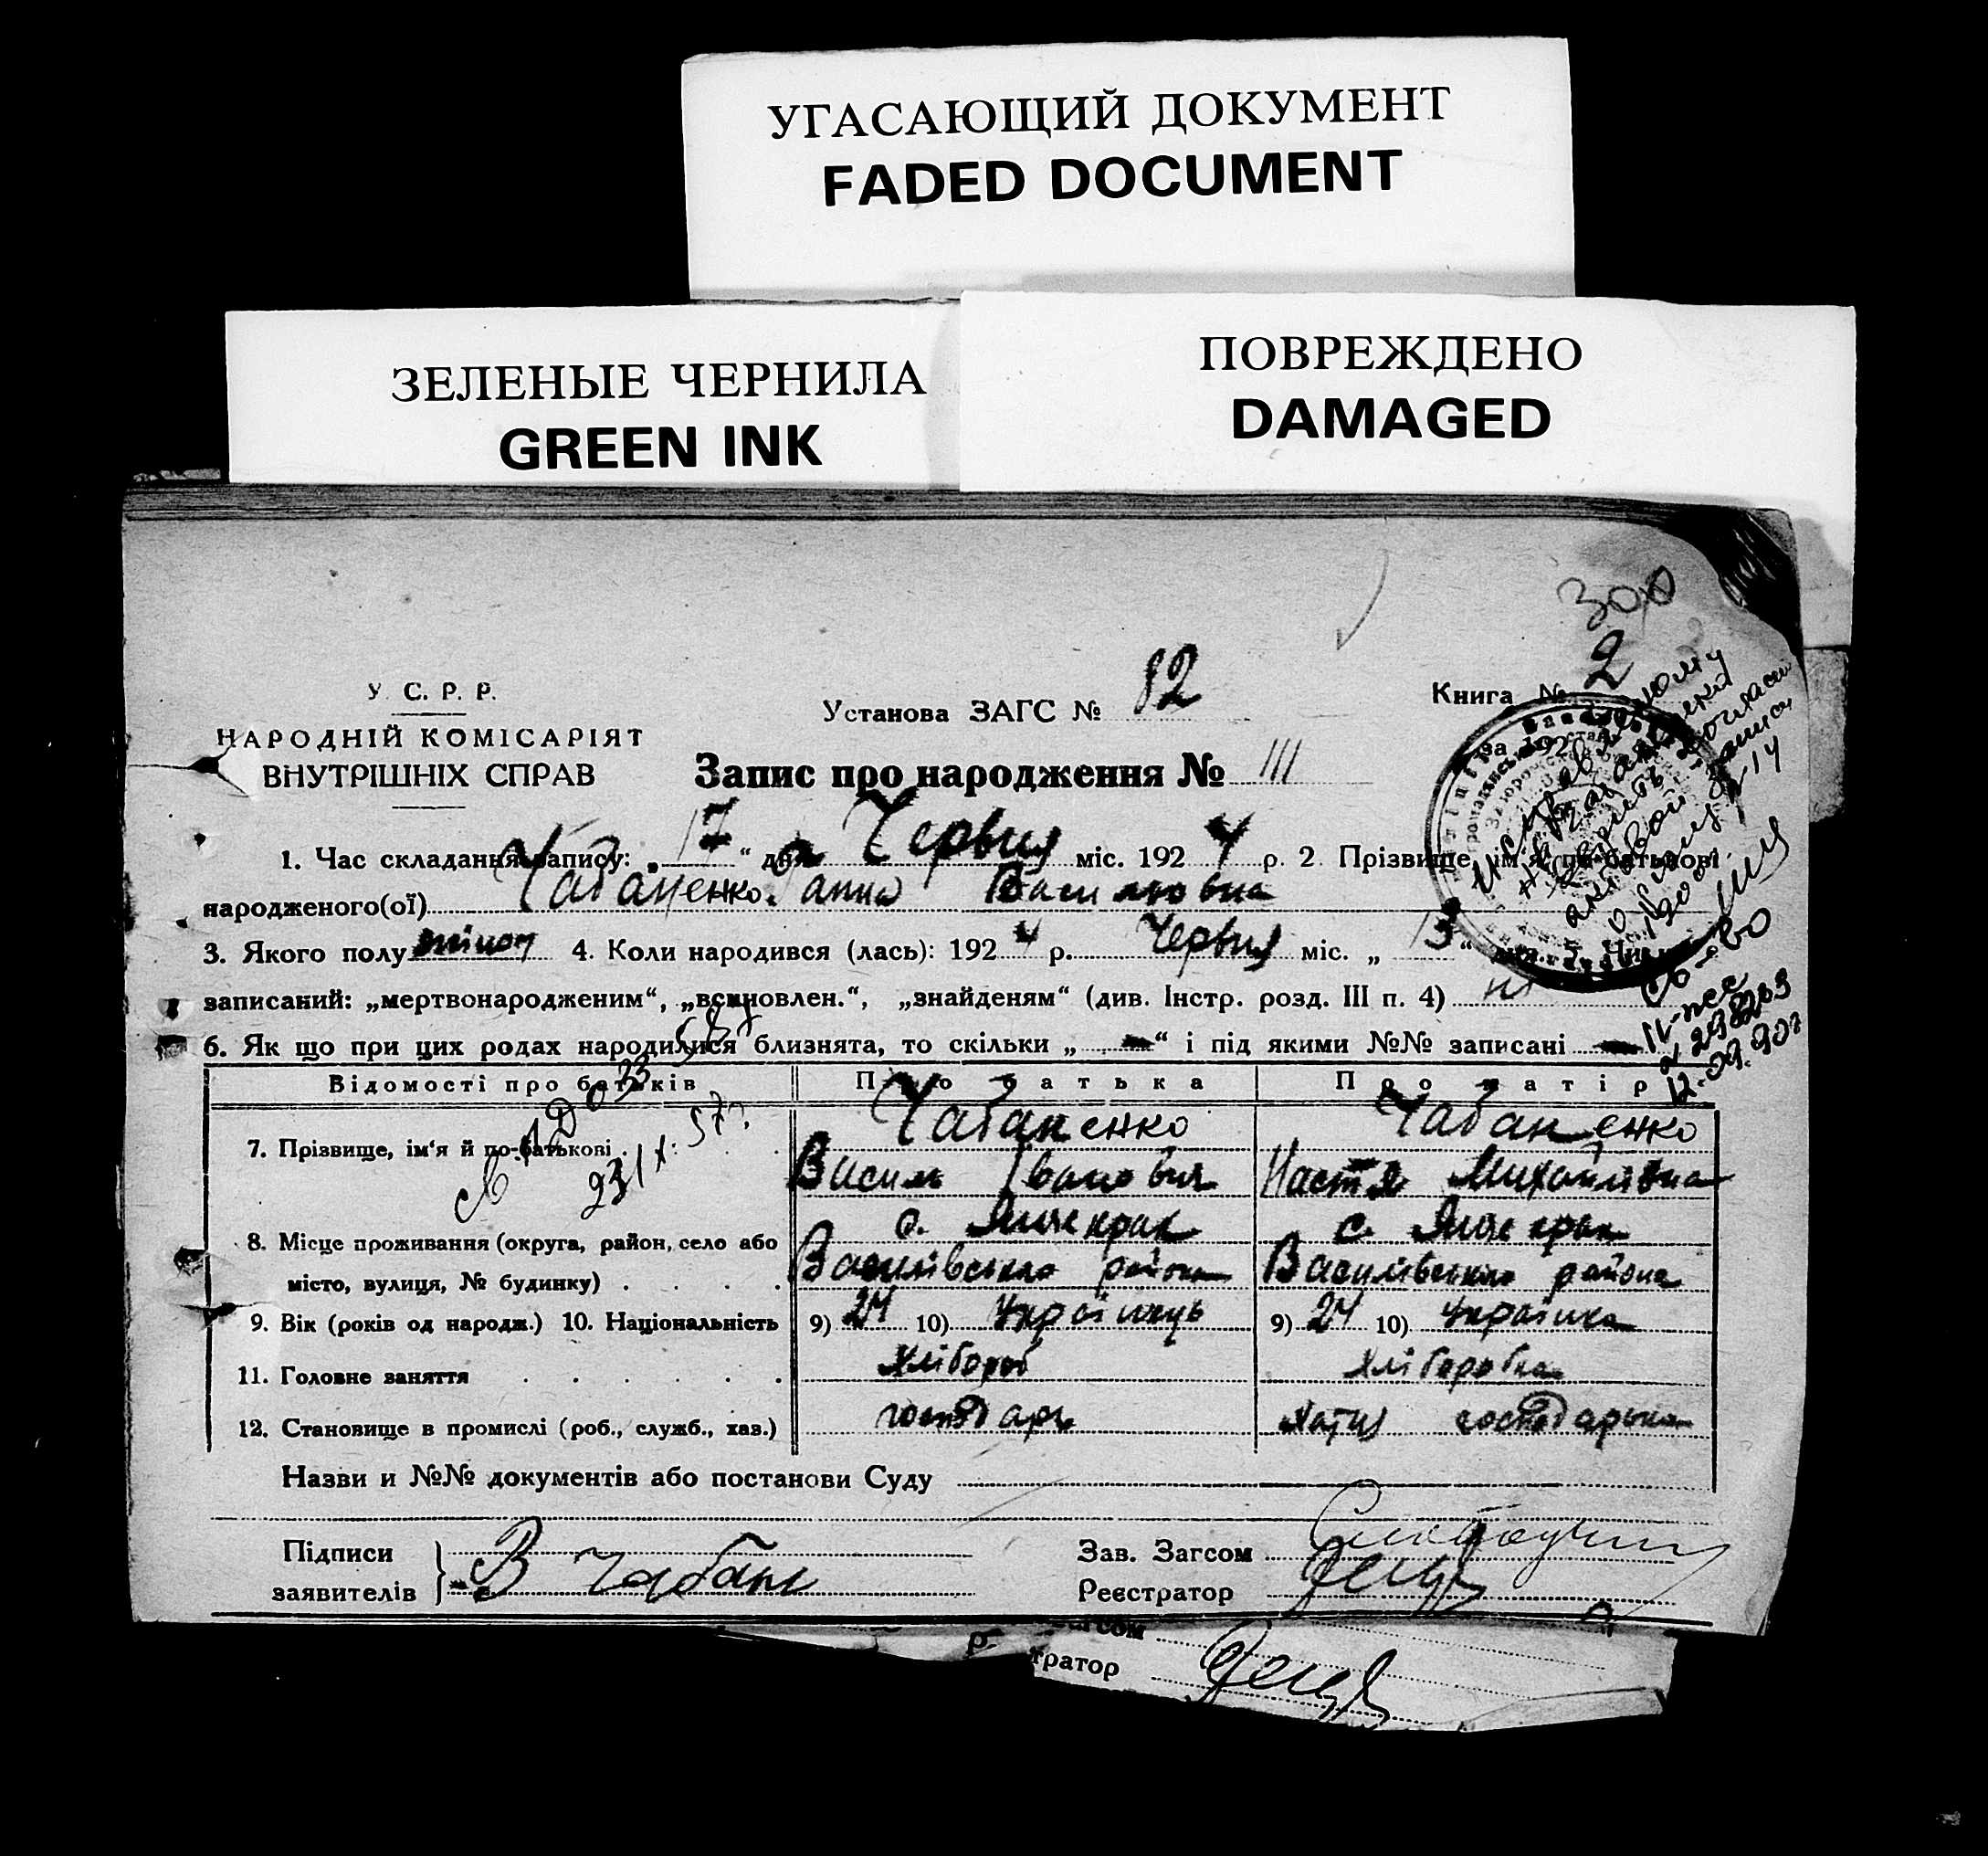 УГАСАЮЩИЙ ДОКУМЕНТ
FADED DOCUMENT
ЗЕЛЕНЫЕ ЧЕРНИЛА
GREEN INK
ПОВРЕЖДЕНО
DAMAGED
300
У. С. Р. Р.
НАРОДНІЙ КОМІСАРІЯТ
ВНУТРІШНІХ СПРАВ
Установа ЗАГС № 82
Книга № 2
Запис про народження № 111
1. Час складання запису: „ 17 “ дн Червня міс. 192 4 р. 2 Прізвище, ім'я, по-батькові
народженого(ої) Чабаненко Ганна Василівна
3. Якого полу жіноч 4. Коли народився (лась): 192 4 р. Червня міс. „ 13 “
записаний: „мертвонародженим“, „всиновлен.“, „знайденям“ (див. Інстр. розд. III п. 4) ні
6. Як що при цих родах народилися близнята, то скільки „ — “ і під якими №№ записані —
Відомості про батьків
Про батька
Про матір
7. Прізвище, ім‘я й по-батькові
Чабаненко
Василь Іванович
Чабаненко
Настя Михайлівна
8. Місце проживання (округа, район, село або
місто, вулиця, № будинку)
с. Янчекрак
Василівського района
с. Янчекрак
Василівського района
9. Вік (років од народж.) 10. Національність
9) 24 10) Українець
9) 24 10) Українка
11. Головне заняття
хлібороб
хліборобка
12. Становище в промислі (роб., служб., хаз.)
господарь
хатня господарька
23/X. 57 г.
св-во
IV-ЖС
238263
12.09.90г
Назви и №№ документів або постанови Суду
Підписи
заявителів
В Чабане
Зав. Загсом
Реєстратор
Загсом
тратор